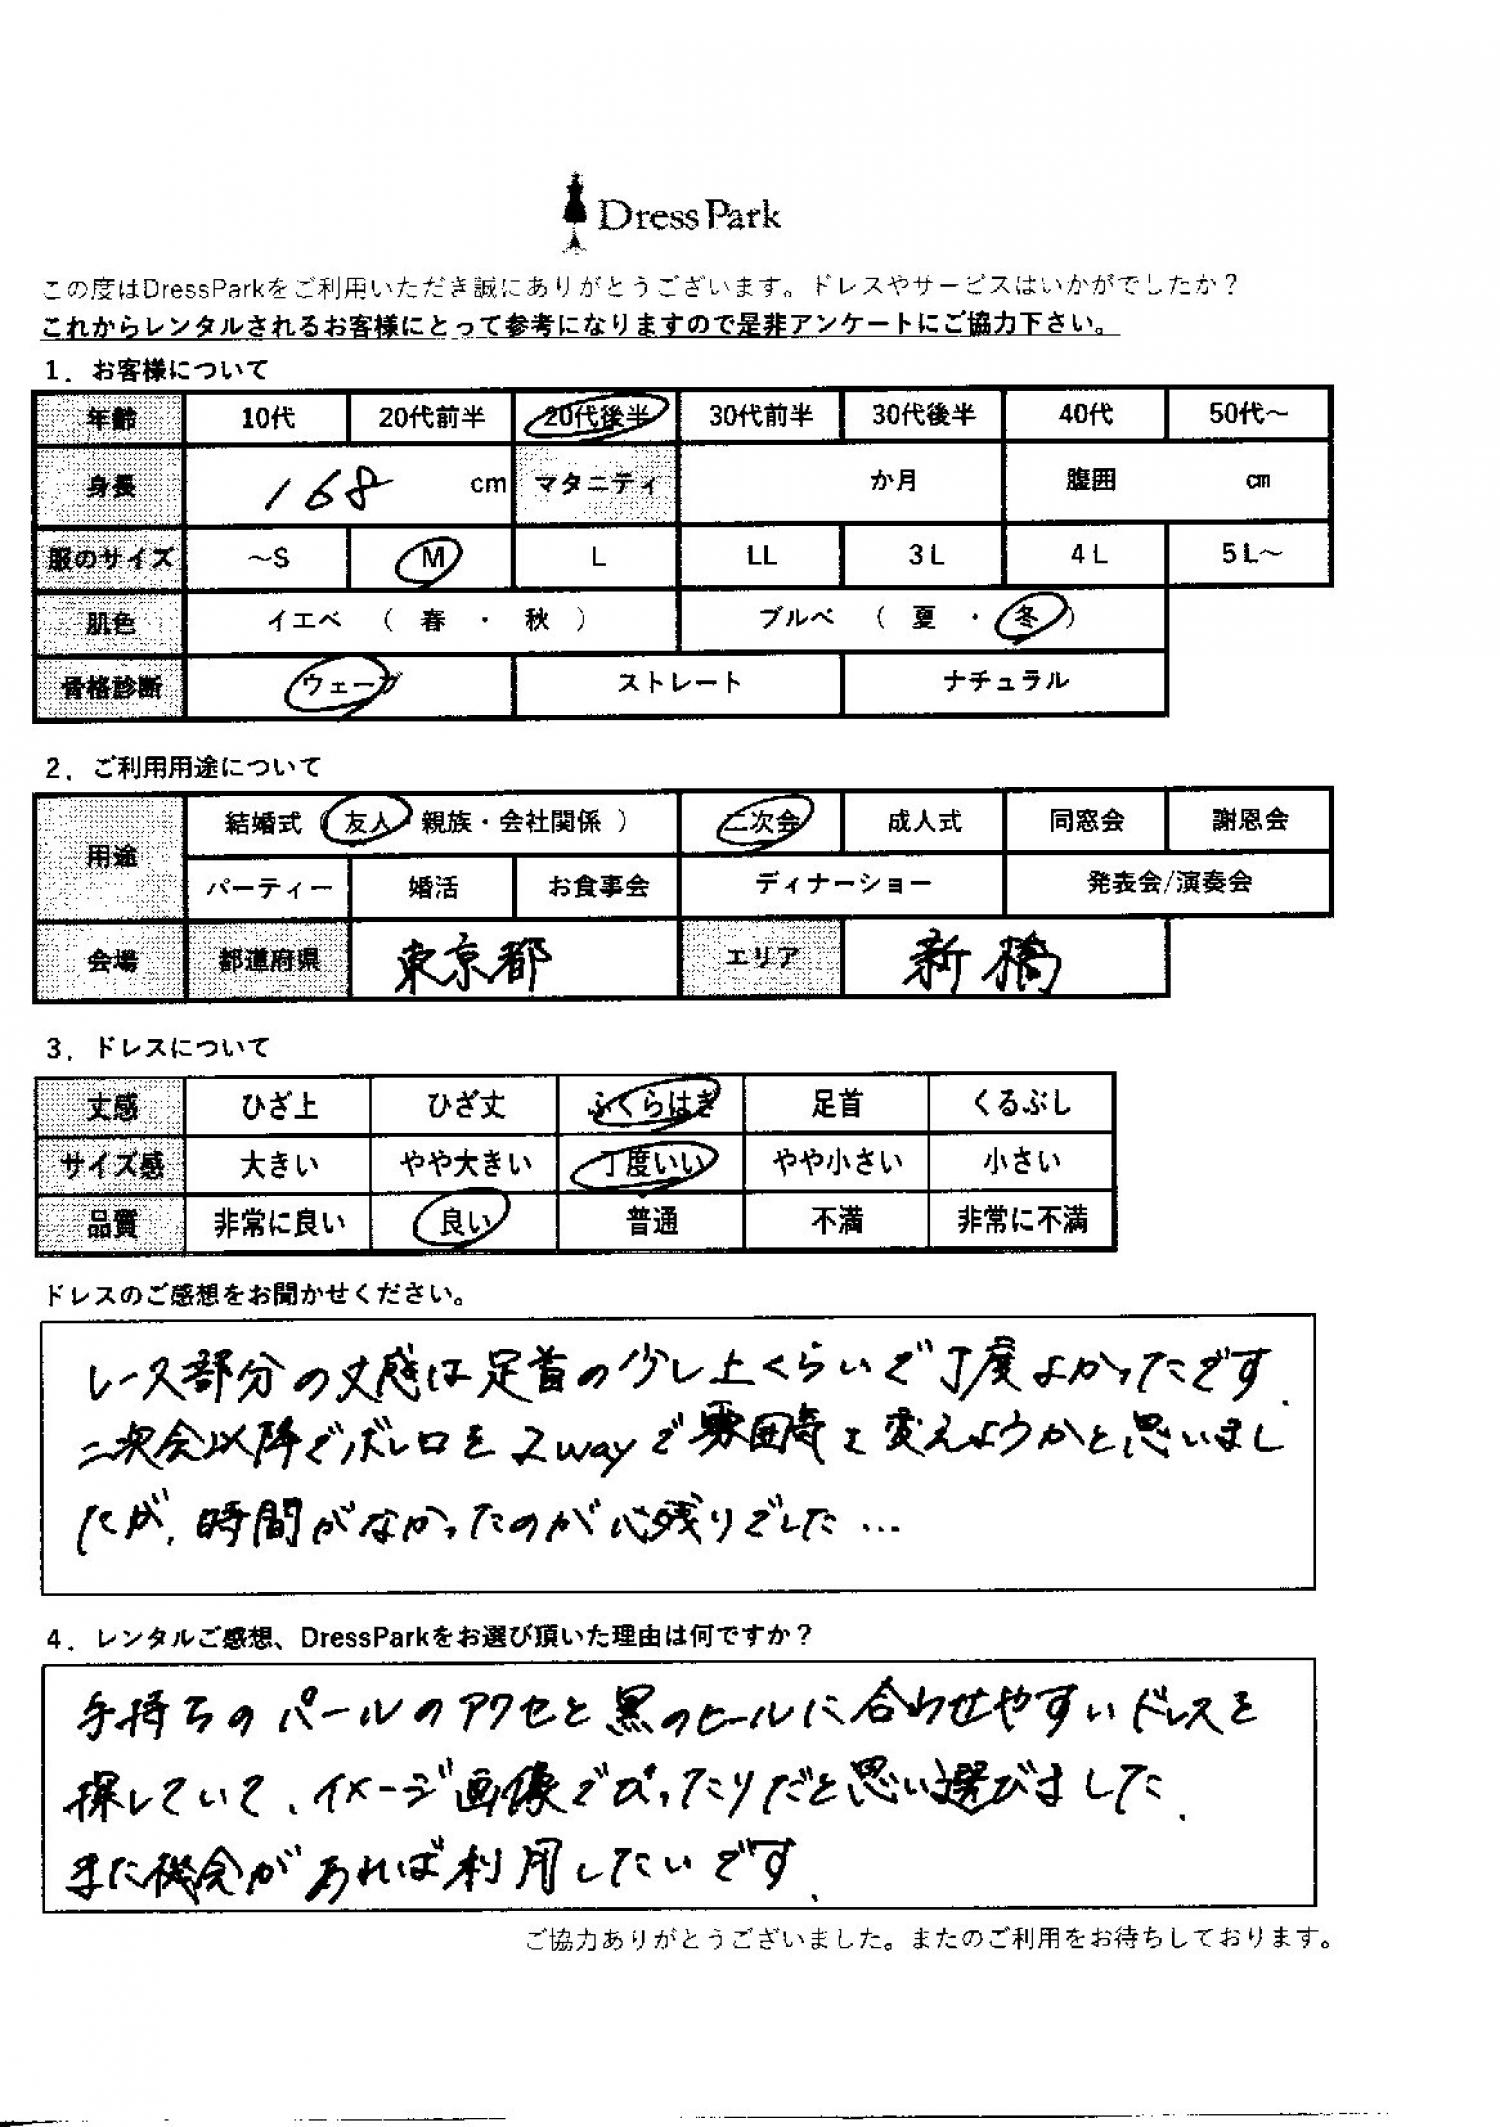 DressPark
この度はDressParkをご利用いただき誠にありがとうございます。ドレスやサービスはいかがでしたか？
これからレンタルされるお客様にとって参考になりますので是非アンケートにご協力下さい。
1．お客様について
年齢 10代 20代前半 20代後半 30代前半 30代後半 40代 50代～
身長 168 cm マタニティ か月 腹囲 cm
服のサイズ ～S M L LL 3L 4L 5L～
肌色 イエベ （ 春 ・ 秋 ） ブルベ （ 夏 ・ 冬 ）
骨格診断 ウェーブ ストレート ナチュラル
2．ご利用用途について
用途 結婚式（友人・親族・会社関係 ） 二次会 成人式 同窓会 謝恩会
パーティー 婚活 お食事会 ディナーショー 発表会/演奏会
会場 都道府県 東京都 エリア 新橋
3．ドレスについて
丈感 ひざ上 ひざ丈 ふくらはぎ 足首 くるぶし
サイズ感 大きい やや大きい 丁度いい やや小さい 小さい
品質 非常に良い 良い 普通 不満 非常に不満
ドレスのご感想をお聞かせください。
レース部分の丈感は足首の少し上くらいで丁度よかったです.
二次会以降でボレロを2wayで雰囲気を変えようかと思いまし
たが、時間がなかったのが心残りでした…
4．レンタルご感想、DressParkをお選び頂いた理由は何ですか？
手持ちのパールのアクセと黒のヒールに合わせやすいドレスを
探していて、イメージ画像でぴったりだと思い選びました.
また機会があれば利用したいです.
ご協力ありがとうございました。またのご利用をお待ちしております。